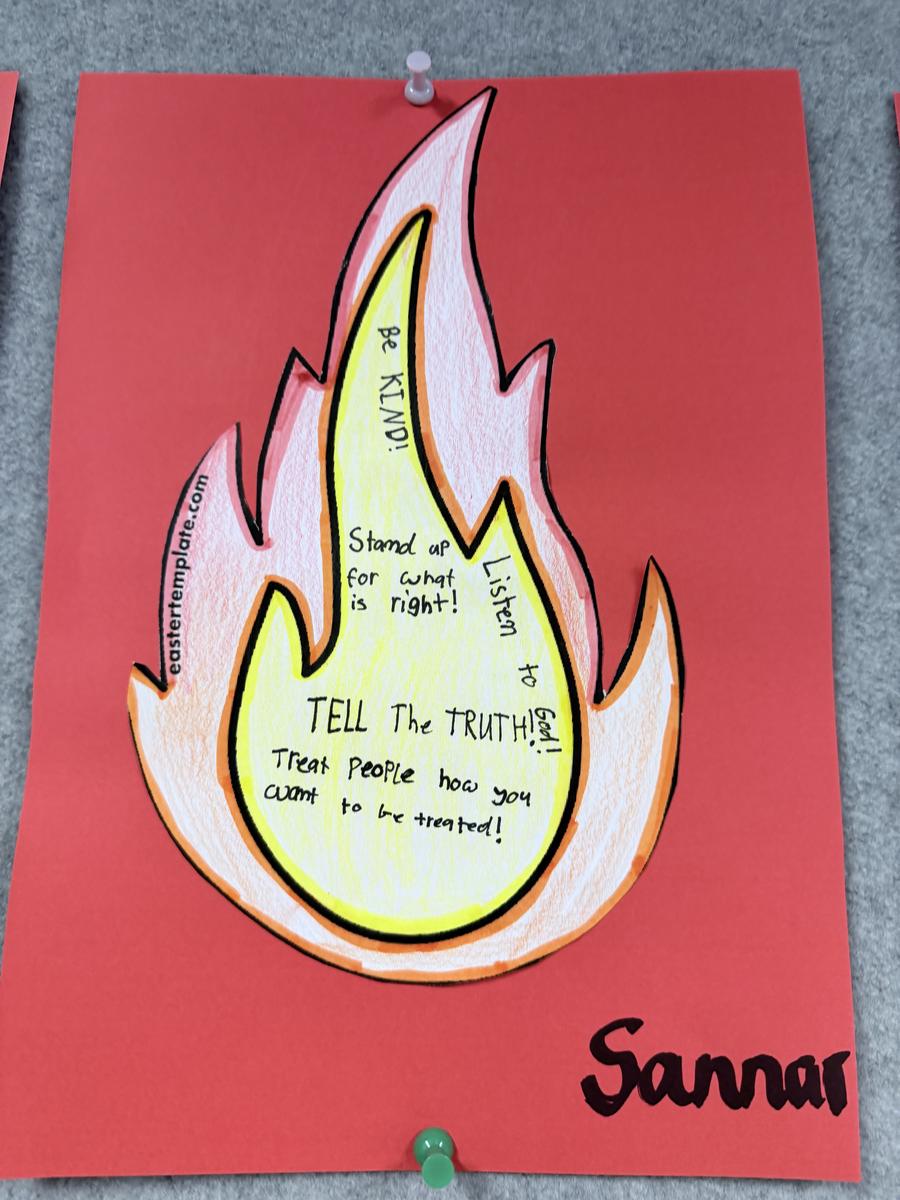 Be KIND!
Stand up
for what
is right!
Listen to God!
TELL The TRUTH!
Treat People how you
want to be treated!
eastertemplate.com
Sannar